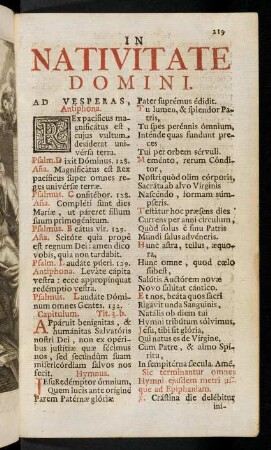 219
IN
NATIVITATE
DOMINI.
AD VESPERAS,
Antiphona.
REx pacificus ma-
gnificatus est,
cujus vultum
desiderat uni-
versa terra.
Psalm. Dixit Dóminus. 128.
Aña. Magnificátus est Rex
pacíficus super omnes re-
ges univérsæ terræ.
Psalmus. Confitébor. 128.
Aña. Compléti sunt dies
Maríæ, ut páreret filium
suum primogénitum.
Psalmus. Beátus vir. 129.
Aña. Scitóte quia prope
est regnum Dei: amen dico
vobis, quia non tardábit.
Psalm. Laudáte púeri. 129.
Antiphona. Leváte cápita
vestra: ecce appropínquat
redémptio vestra.
Psalmus. Laudáte Dómi-
num omnes Gentes. 132.
Capitulum. Tit. 3. b.
APpáruit benígnitas, &
humánitas Salvatóris
nostri Dei, non ex opéri-
bus justítiæ quæ fécimus
nos, sed secúndùm suam
misericórdiam salvos nos
fecit. Hymnus.
JEsu Redémptor ómnium,
Quem lucis ante oríginem
Parem Patérnæ glóriæ
Pater suprémus édidit.
Tu lumen, & splendor Pa-
tris,
Tu spes perénnis ómnium,
Inténde quas fundunt pre-
ces
Tui per orbem sérvuli.
Meménto, rerum Cóndi-
tor,
Nostri quòd olim córporis,
Sacráta ab alvo Vírginis
Nascéndo, formam súm-
pseris.
Testátur hoc præsens dies
Currens per anni círculum,
Quòd solus è sinu Patris
Mundi salus advéneris.
Hunc astra, tellus, æquo-
ra,
Hunc omne, quod cœlo
subest,
Salútis Auctórem novæ
Novo salútat cántico.
Et nos, beáta quos sacri
Rigávit unda Sánguinis,
Natális ob diem tui
Hymni tribútum sólvimus.
Jesu, tibi sit glória,
Qui natus es de Vírgine,
Cum Patre, & almo Spí-
ritu,
In sempitérna sécula. Amé.
Sic terminantur omnes
Hymni ejusdem metri us-
que ad Epiphaniam.
℣. Crástina die delébitur
ini-